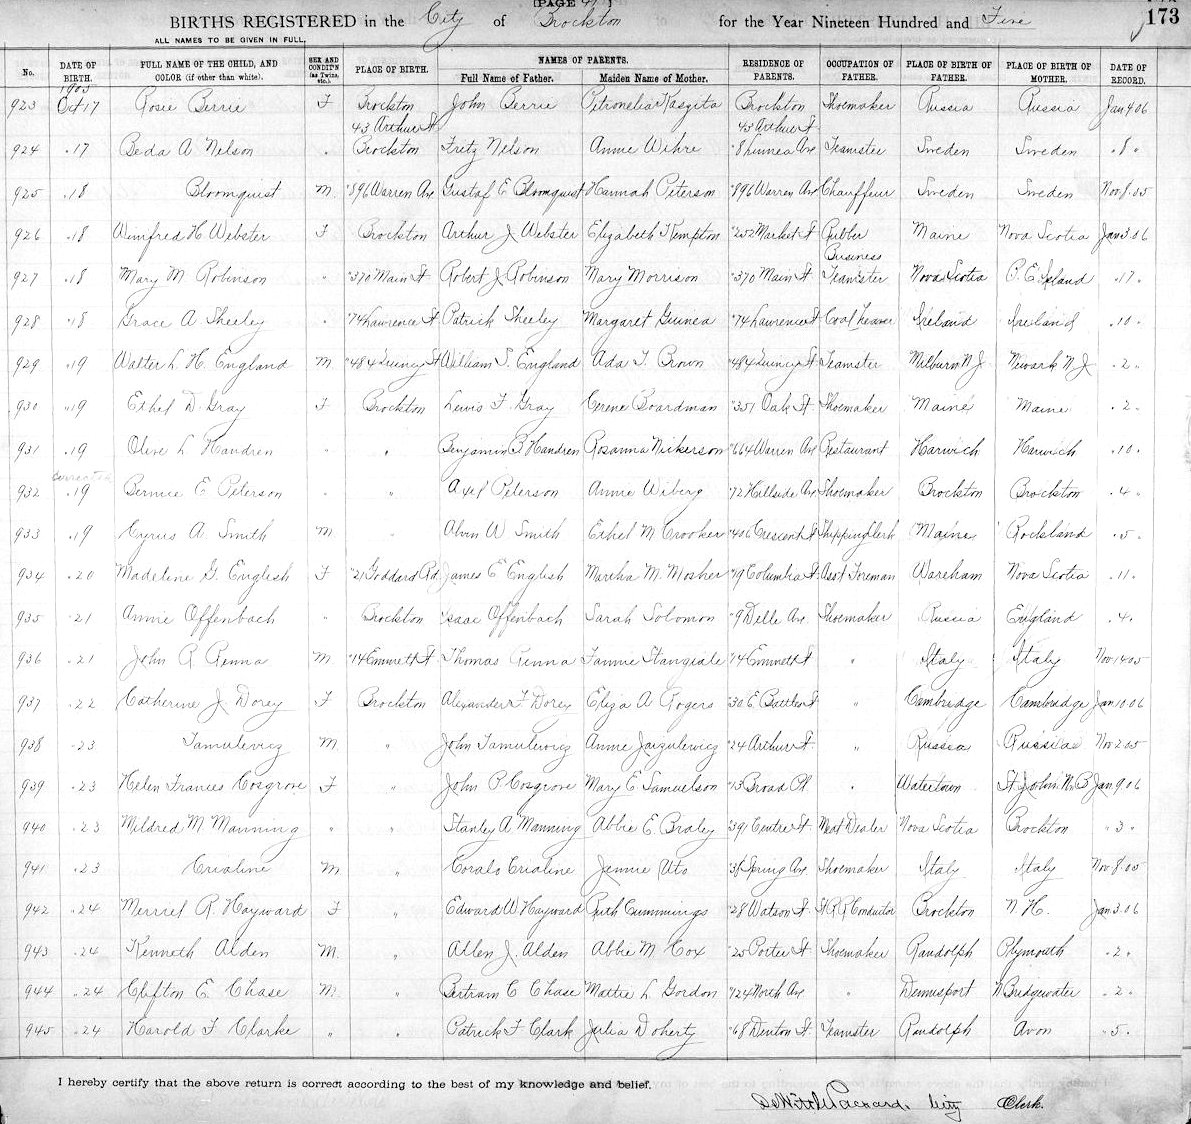 [PAGE 41]
BIRTHS REGISTERED in the City of Brockton for the Year Nineteen Hundred and Five 173
ALL NAMES TO BE GIVEN IN FULL.
No. DATE OF BIRTH. FULL NAME OF THE CHILD, AND COLOR (if other than white). SEX AND CONDIT'N (as Twins, etc.). PLACE OF BIRTH. NAMES OF PARENTS. Full Name of Father. Maiden Name of Mother. RESIDENCE OF PARENTS. OCCUPATION OF FATHER. PLACE OF BIRTH OF FATHER. PLACE OF BIRTH OF MOTHER. DATE OF RECORD.
1905
923 Oct 17 Rosie Berrie F Brockton John Berrie Petronelia Kasgita Brockton Shoemaker Russia Russia Jan 4 06
43 Arthur St 43 Arthur St
924 " 17 Beda A Nelson " Brockton Fritz Nelson Annie Wihre "8 Linnea Av Teamster Sweden Sweden " 8 "
925 " 18 Bloomquist M "896 Warren Av Gustaf E Bloomquist Hannah Peterson "896 Warren Av Chauffeur Sweden Sweden Nov 8 05
926 " 18 Winifred H Webster F Brockton Arthur J Webster Elizabeth F Kempton "252 Market St Rubber Maine Nova Scotia Jan 3 06
Business
927 " 18 Mary M Robinson " "370 Main St Robert J Robinson Mary Morrison "370 Main St Teamster Nova Scotia P. E. Island " 17 "
928 " 18 Grace A Sheeley " "74 Lawrence St Patrick Sheeley Margaret Guinea "74 Lawrence St Ireland Ireland " 10 "
929 " 19 Walter L. H. England M "484 Quincy St William S. England Ada T. Brown "484 Quincy St Teamster Milburn N J Newark N J " 2 "
930 " 19 Ethel D Gray F Brockton Lewis F Gray Cerene Boardman "351 Oak St Shoemaker Maine Maine " 2 "
931 " 19 Olive L Handren " " Benjamin B Handren Rosanna Nickerson "664 Warren Av Restaurant Harwich Harwich " 10 "
Corrected
932 " 19 Bernice E Peterson " " Axel Peterson Annie Wiberg "72 Hillside Av Shoemaker Brockton Brockton " 4 "
933 " 19 Cyrus A Smith M " Alvin W Smith Ethel M Crooker "406 Crescent St Shipping Clerk Maine Rockland " 5 "
934 " 20 Madeline G. English F "21 Goddard Rd James E English Martha M. Mosher "19 Columbia St Asst Foreman Wareham Nova Scotia " 11 "
935 " 21 Annie Offenbach " Brockton Isaac Offenbach Sarah Solomon "9 Dells Av Shoemaker Russia England " 4 "
936 " 21 John R Renna M "14 Emmett St Thomas Renna Fannie Stangiale "14 Emmett St " Italy Italy Nov 14 05
937 " 22 Catherine J Dorey F Brockton Alexander F Dorey Eliza A Rogers "30 E Battles St " Cambridge Cambridge Jan 10 06
938 " 23 Tamulevicz M " John Tamulevicz Annie Jazulevicz "24 Arthur St " Russia Russia Nov 2 05
939 " 23 Helen Frances Cosgrove F " John P Cosgrove Mary E Samuelson "13 Broad Pl " Watertown St John N. B Jan 9 06
940 " 23 Mildred M Manning " " Stanley A Manning Abbie E Braley "391 Centre St Meat Dealer Nova Scotia Brockton " 3 "
941 " 23 Crialine M " Coralo Crialine Jennie Uts "31 Spring Av Shoemaker Italy Italy Nov 8 05
942 " 24 Merriel R. Hayward F " Edward W Hayward Ruth Cummings "28 Watson St St R R Conductor Brockton N. H. Jan 3 06
943 " 24 Kenneth Alden M. " Allen J. Alden Abbie M Cox "25 Porter St Shoemaker Randolph Plymouth " 2 "
944 " 24 Clifton E Chase M. " Bertram C Chase Mattie L Gordon "724 North Av " Dennisport N Bridgewater " 2 "
945 " 24 Harold F Clarke " " Patrick F Clark Julia Doherty "68 Denton St Teamster Randolph Avon " 5 "
I hereby certify that the above return is correct according to the best of my knowledge and belief.
DeWitt C Packard, City Clerk.